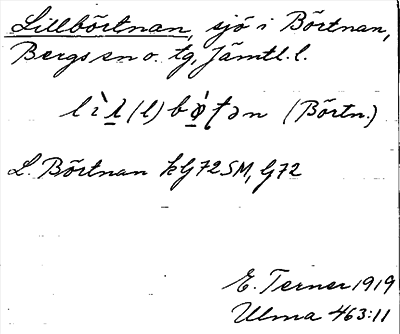 Lillbörtnan, sjö i Börtnan,
Bergs sn o. tg, Jämtl. l.
(Börtn.)
L. Börtnan kG72SM, G72
E. Terner 1919
Ulma 463:11